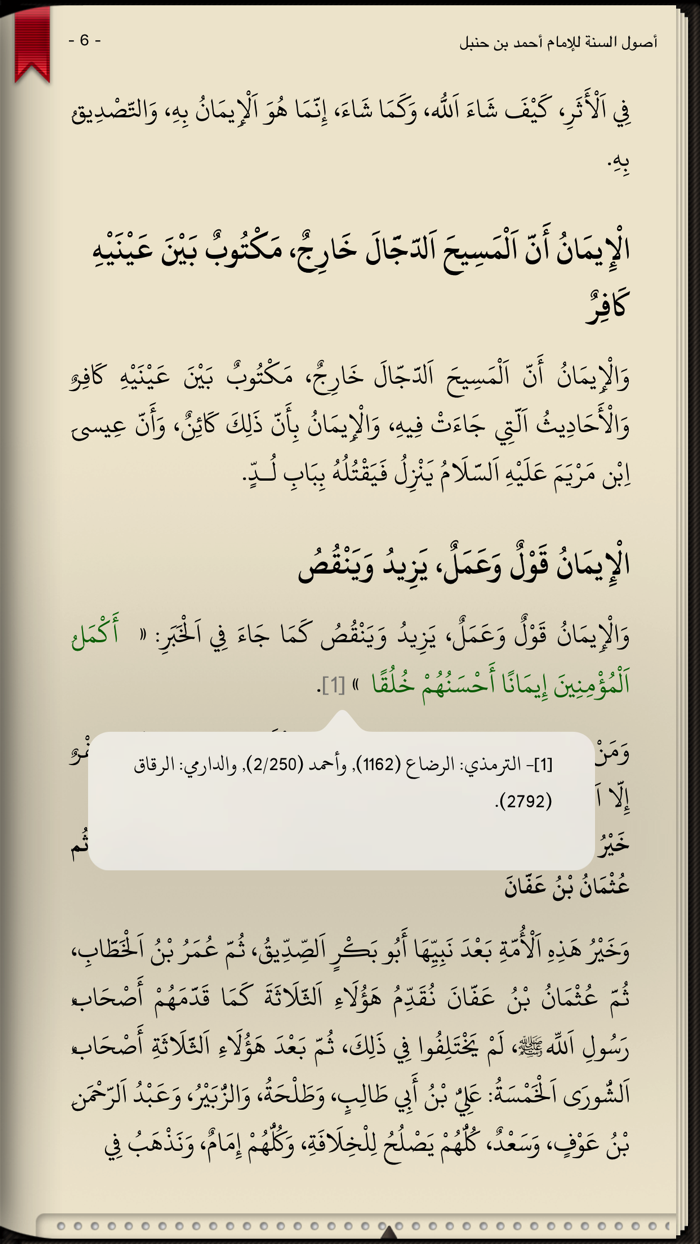 أصول السنة للإمام أحمد بن حنبل
- 6 -
فِي اَلْأَثَرِ، كَيْفَ شَاءَ اَللَّه، وَكَمَا شَاءَ، إِنَّمَا هُوَ اَلْإِيمَانُ بِهِ، وَالتَّصْدِيقُ
بِهِ.
الْإِيمَانُ أَنَّ اَلْمَسِيحَ اَلدَّجَّالَ خَارِجٌ، مَكْتُوبٌ بَيْنَ عَيْنَيْهِ
كَافِرٌ
وَالْإِيمَانُ أَنَّ اَلْمَسِيحَ اَلدَّجَّالَ خَارِجٌ، مَكْتُوبٌ بَيْنَ عَيْنَيْهِ كَافِرٌ
وَالْأَحَادِيثُ اَلَّتِي جَاءَتْ فِيهِ، وَالْإِيمَانُ بِأَنَّ ذَلِكَ كَائِنٌ، وَأَنَّ عِيسَى
اِبْن مَرْيَمَ عَلَيْهِ اَلسَّلَامُ يَنْزِلُ فَيَقْتُلُهُ بِبَابِ لُــدٍّ.
الْإِيمَانُ قَوْلٌ وَعَمَلٌ، يَزِيدُ وَيَنْقُصُ
وَالْإِيمَانُ قَوْلٌ وَعَمَلٌ، يَزِيدُ وَيَنْقُصُ كَمَا جَاءَ فِي اَلْخَبَرِ: « أَكْمَلُ
اَلْمُؤْمِنِينَ إِيمَانًا أَحْسَنُهُمْ خُلُقًا » [1].
وَمَنْ
إِلَّا
خَيْرُ ثُم
[1]- الترمذي: الرضاع (1162), وأحمد (2/250), والدارمي: الرقاق
(2792).
عُثْمَانُ بْنُ عَفَّانَ
وَخَيْرُ هَذِهِ اَلْأُمَّةِ بَعْدَ نَبِيِّهَا أَبُو بَكْرٍ اَلصِّدِّيقُ، ثُمَّ عُمَرُ بْنُ اَلْخَطَّابِ،
ثُمَّ عُثْمَانُ بْنُ عَفَّانَ نُقَدِّمُ هَؤُلَاءِ اَلثَّلَاثَةَ كَمَا قَدَّمَهُمْ أَصْحَابُ
رَسُولِ اَللَّهِ ﷺ، لَمْ يَخْتَلِفُوا فِي ذَلِكَ، ثُمَّ بَعْدَ هَؤُلَاءِ اَلثَّلَاثَةِ أَصْحَابُ
اَلشُّورَى اَلْخَمْسَةُ: عَلِيُّ بْنُ أَبِي طَالِبٍ، وَطَلْحَةُ، وَالزُّبَيْرُ، وَعَبْدُ اَلرَّحْمَنِ
بْنُ عَوْفٍ، وَسَعْدٌ، كُلُّهُمْ يَصْلُحُ لِلْخِلَافَةِ، وَكُلُّهُمْ إِمَامٌ، وَنَذْهَبُ فِي